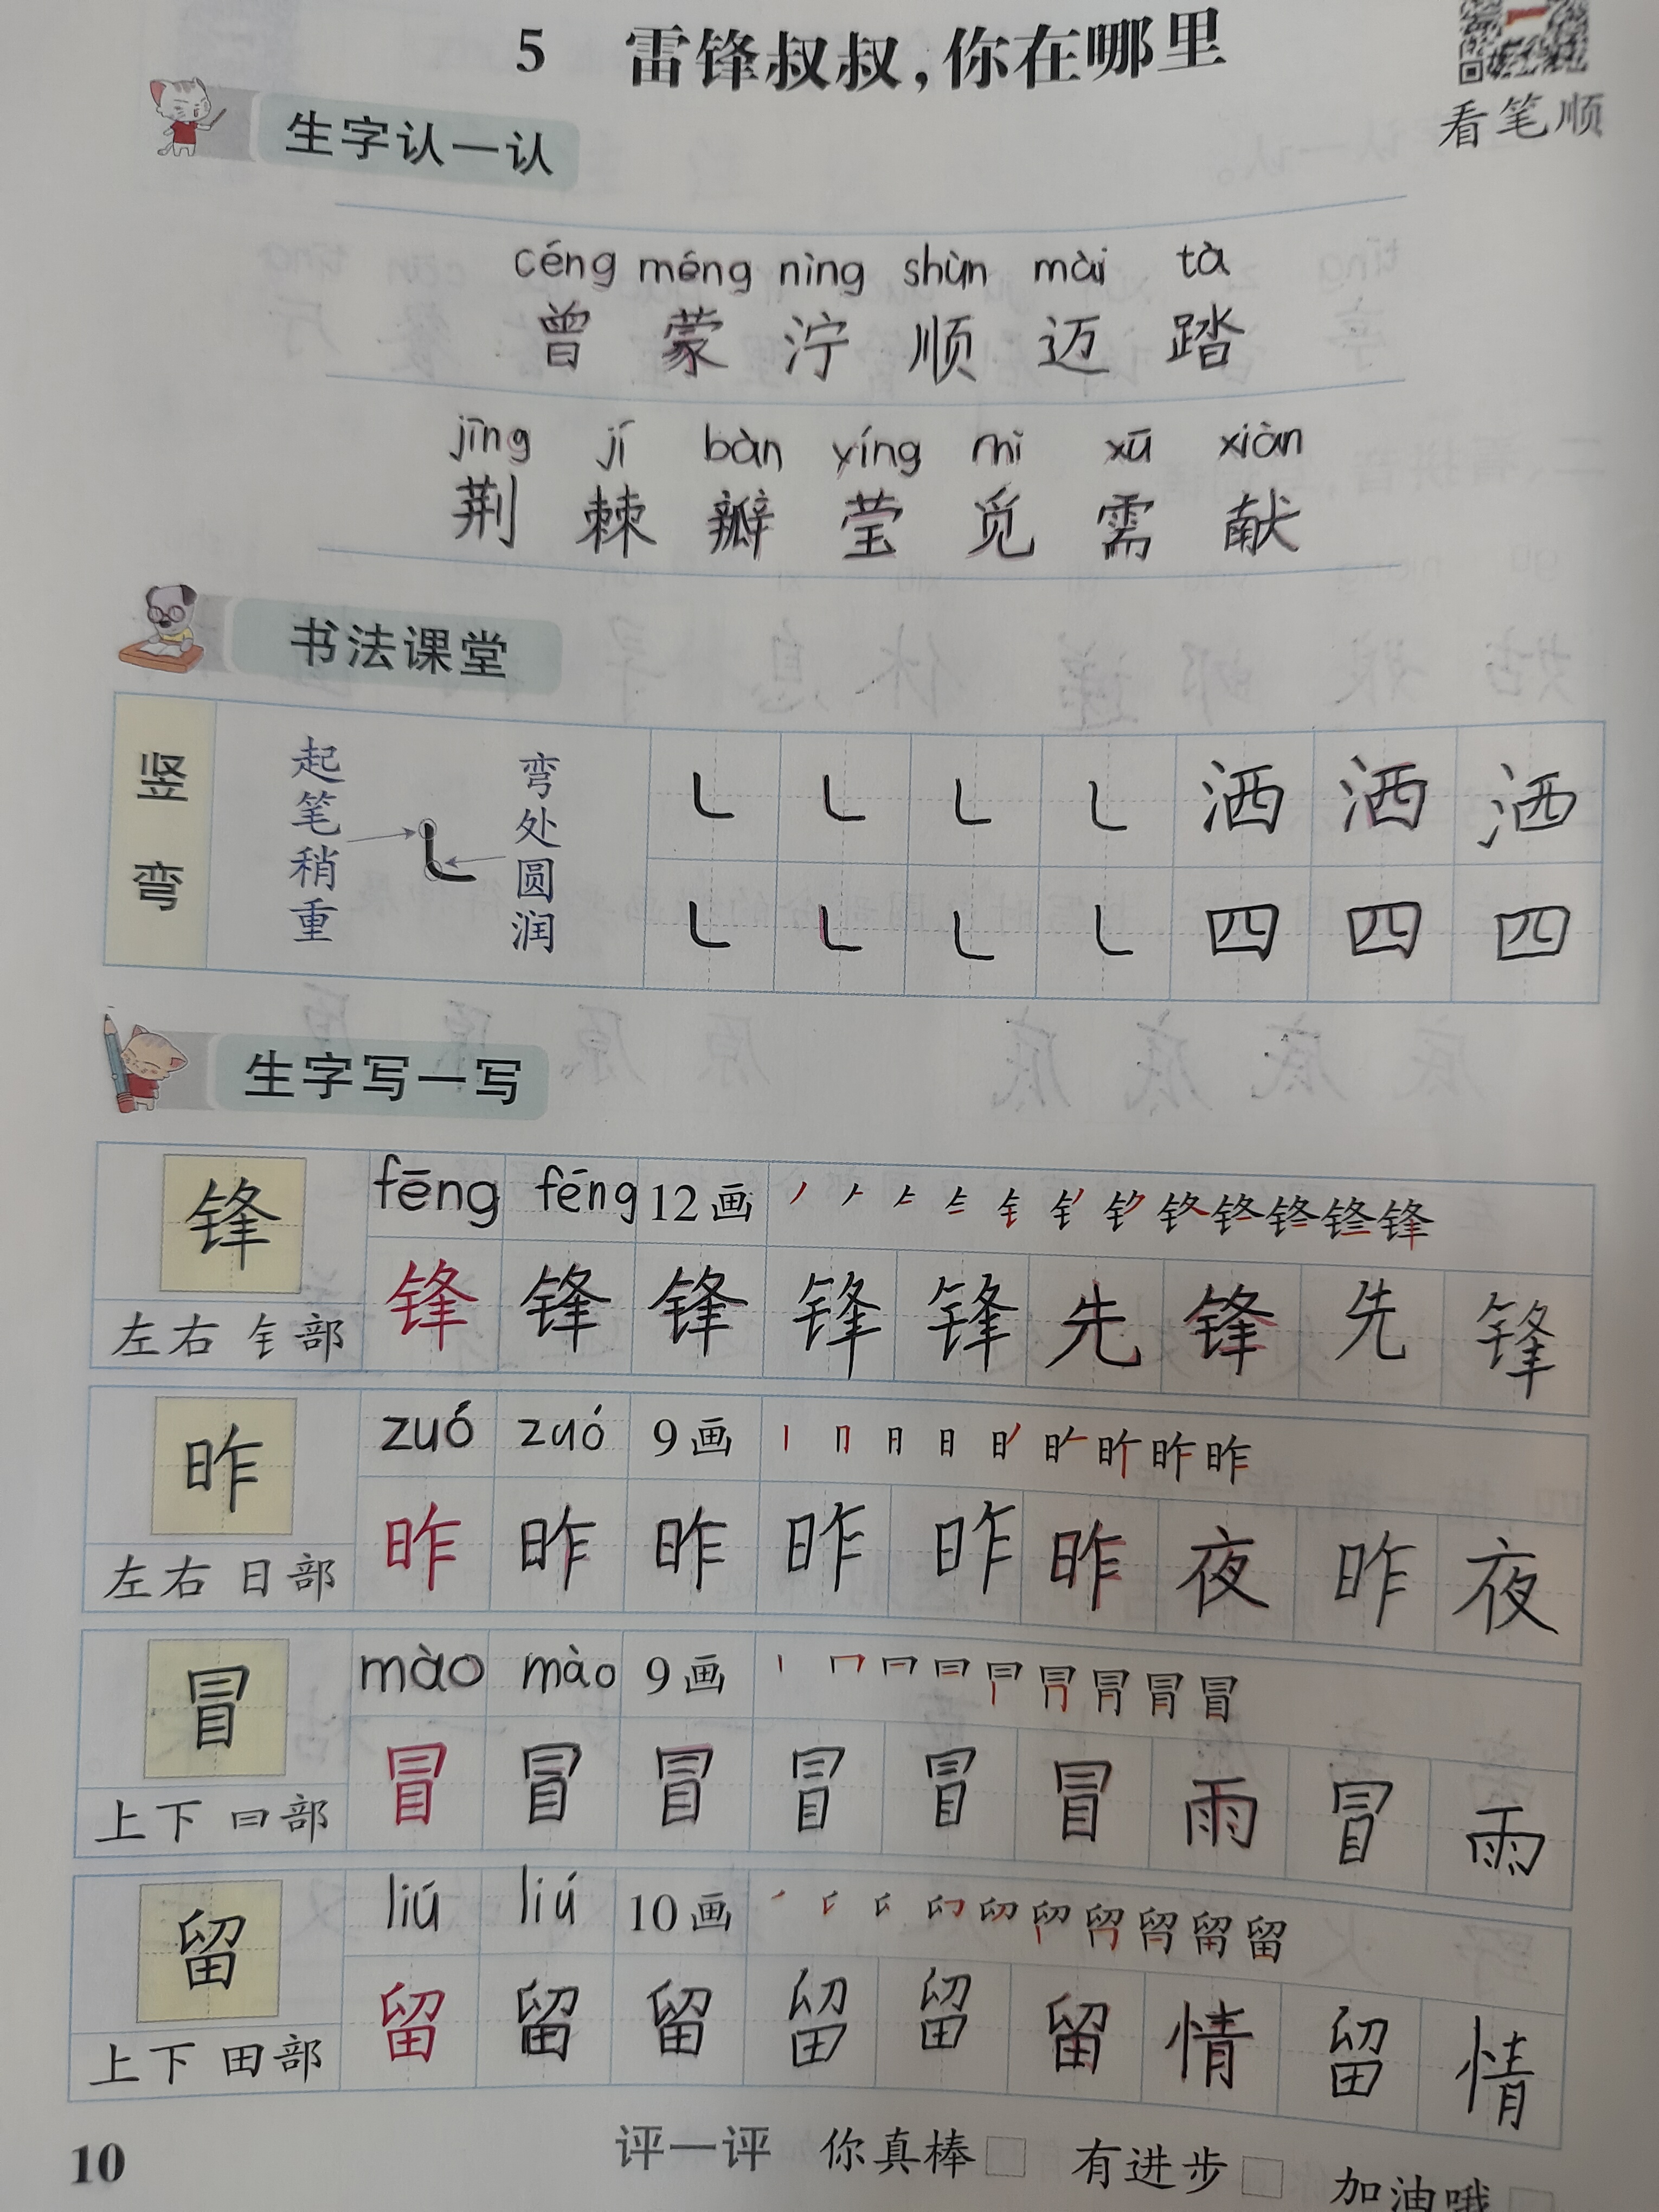 5 雷锋叔叔,你在哪里
看笔顺
生字认一认
céng méng nìng shùn mài tà
曾 蒙 泞 顺 迈 踏
jīng jí bàn yíng mì xū xiàn
荆 棘 瓣 莹 觅 需 献
书法课堂
竖弯
起笔稍重
弯处圆润
㇄ ㇄ ㇄ ㇄ 洒 洒 洒
㇄ ㇄ ㇄ ㇄ 四 四 四
生字写一写
锋 fēng fēng 12画
左右 钅部
锋 锋 锋 锋 锋 先 锋 先 锋
昨 zuó zuó 9画
左右 日部
昨 昨 昨 昨 昨 昨 夜 昨 夜
冒 mào mào 9画
上下 曰部
冒 冒 冒 冒 冒 冒 雨 冒 雨
留 liú liú 10画
上下 田部
留 留 留 留 留 留 情 留 情
评一评 你真棒 有进步 加油哦
10